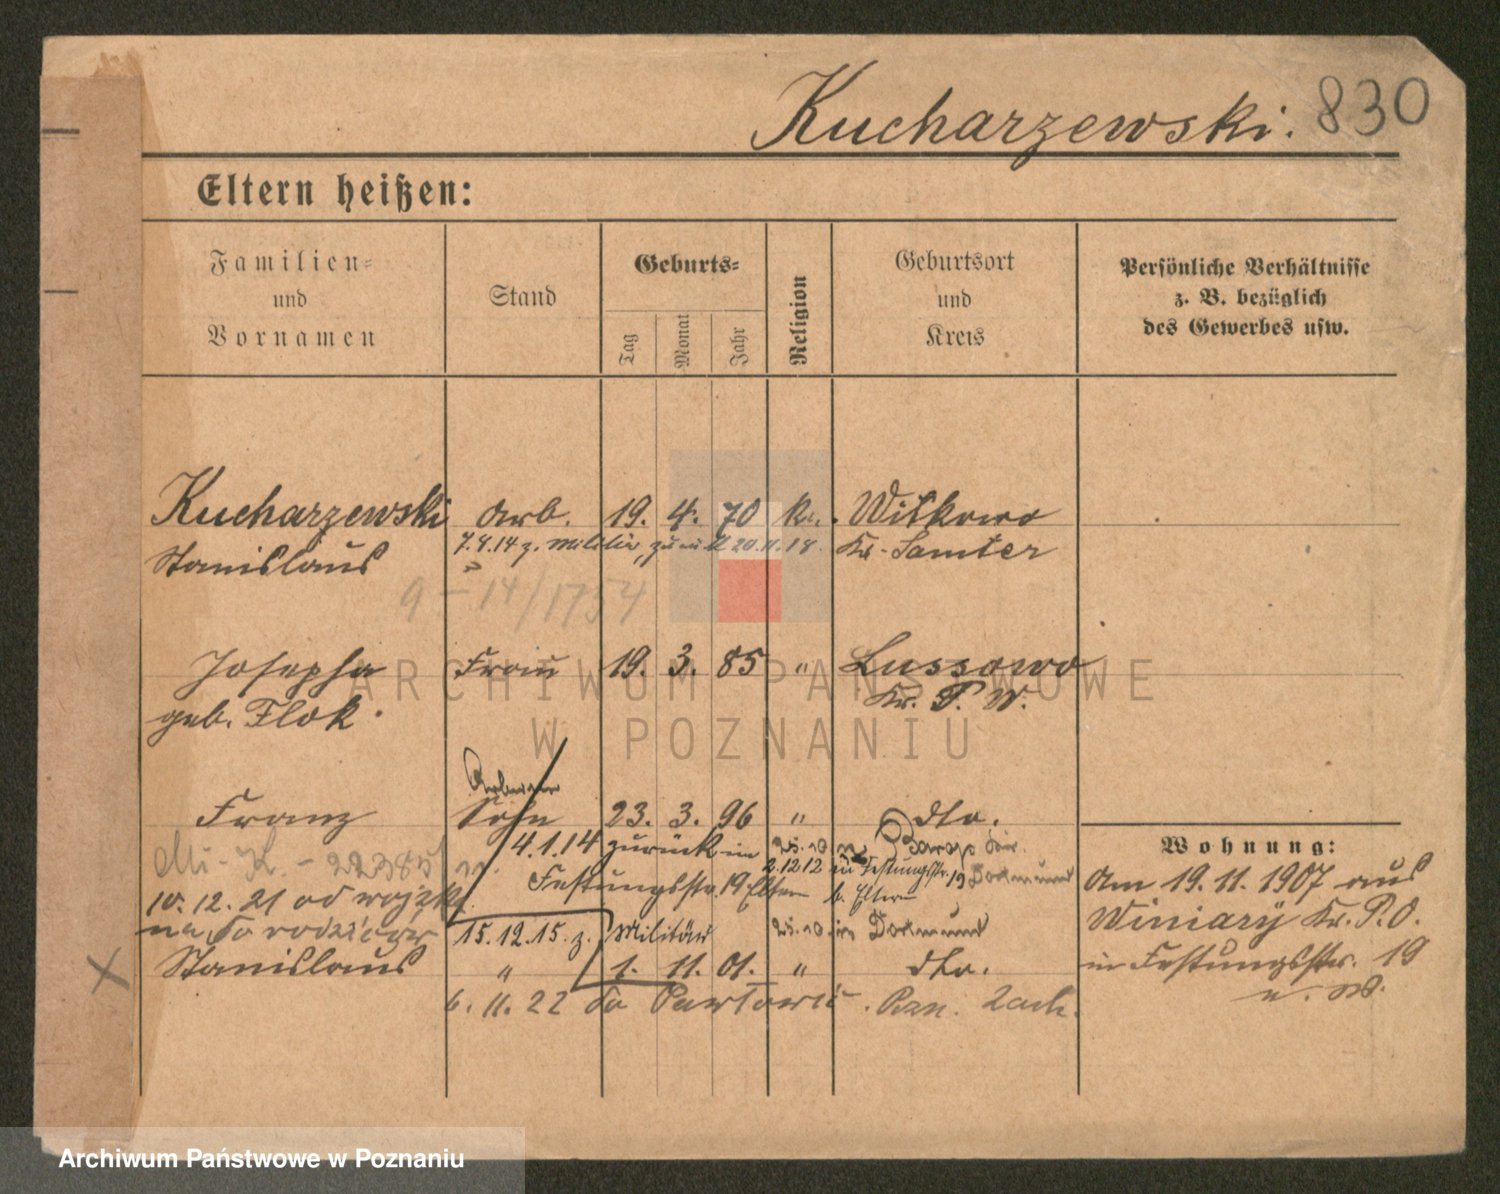 Kucharzewski. 830
Eltern heißen:
Familien- und Vornamen
Stand
Geburts-
Tag
Monat
Jahr
Religion
Geburtsort und Kreis
Persönliche Verhältnisse z. B. bezüglich des Gewerbes usw.
Kucharzewski Arb. 19. 4. 70 k. Witkowo
7.8.14 z. Militär, zurück 20.11.18. Kr. Samter
Stanislaus
9-14/1754
Josepha Frau 19. 3. 85 " Lussowo
geb. Flok. Kr. P. W.
ARCHIWUM PAŃSTWOWE
W POZNANIU
Franz Sohn 23. 3. 96 " dto.
4.1.14 zurück in
Wohnung:
Mi-K.-22385
2.12.12 Festungsstr. 19
Festungsstr. 19 Eltern b. Eltern
Am 19.11.1907 aus
10.12.21 od wojska
Winiary Kr. P.O.
na do rodziców 15.12.15. z. Militär Dortmund
in Festungsstr. 19
Stanislaus " 1. 11. 01. " dto.
u. W.
6.11.22 do Pawłowic. Pzn. Zach.
Archiwum Państwowe w Poznaniu